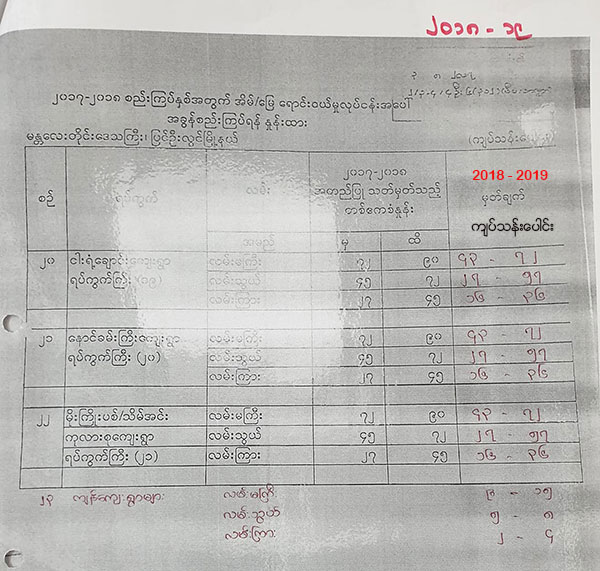 ၂၀၁၈ - ၁၉
၂၀၁၇-၂၀၁၈ စည်းကြပ်နှစ်အတွက် အိမ်/မြေ ရောင်းဝယ်မှုလုပ်ငန်းအပေါ်
အခွန်စည်းကြပ်ရန် နှုန်းထား
မန္တလေးတိုင်းဒေသကြီး၊ ပြင်ဦးလွင်မြို့နယ်
စဉ် ရပ်ကွက် လမ်း အမည် ၂၀၁၇-၂၀၁၈ အတည်ပြု သတ်မှတ်သည့် တစ်ဧကစံနှုန်း 2018 - 2019 မှတ်ချက် ကျပ်သန်းပေါင်း
မှ ထိ
၂၀ ငါးရံ့ချောင်းကျေးရွာ လမ်းမကြီး ၇၂ ၉၀ ၄၃ - ၇၂
ရပ်ကွက်ကြီး (၁၉) လမ်းသွယ် ၄၅ ၇၂ ၂၇ - ၅၇
လမ်းကြား ၂၇ ၄၅ ၁၆ - ၃၆
၂၁ နောင်ခမ်းကြီးကျေးရွာ လမ်းမကြီး ၇၂ ၉၀ ၄၃ - ၇၂
ရပ်ကွက်ကြီး (၂၀) လမ်းသွယ် ၄၅ ၇၂ ၂၇ - ၅၇
လမ်းကြား ၂၇ ၄၅ ၁၆ - ၃၆
၂၂ မိုးကြိုးပစ်/သိမ်အင်း လမ်းမကြီး ၇၂ ၉၀ ၄၃ - ၇၂
ကုလားစုကျေးရွာ လမ်းသွယ် ၄၅ ၇၂ ၂၇ - ၅၇
ရပ်ကွက်ကြီး (၂၁) လမ်းကြား ၂၇ ၄၅ ၁၆ - ၃၆
၂၃ ကျန်ကျေးရွာများ လမ်းမကြီး ၉ - ၁၅
လမ်းသွယ် ၅ - ၈
လမ်းကြား ၂ - ၄